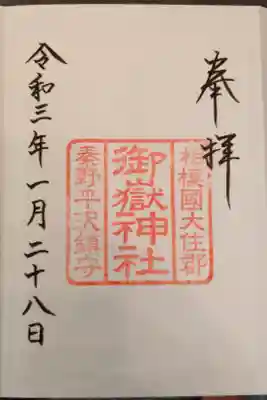 奉拝
相模國大住郡
御嶽神社
秦野平沢鎮守
令和三年一月二十八日